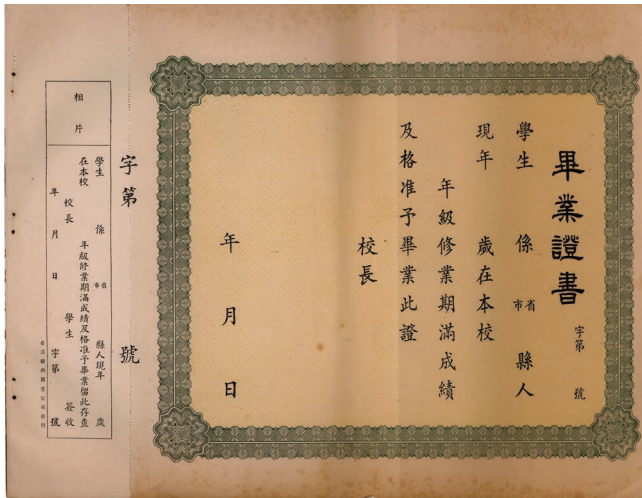 畢業證書
字第 號
學生 係 省市 縣人
現年 歲在本校
年級修業期滿成績
及格准予畢業此證
校長
年 月 日
字第 號
相片
學生 係 省市 縣人現年 歲
在本校 年級修業期滿成績及格准予畢業留此存查
校長 學生 簽收
年 月 日 字第 號